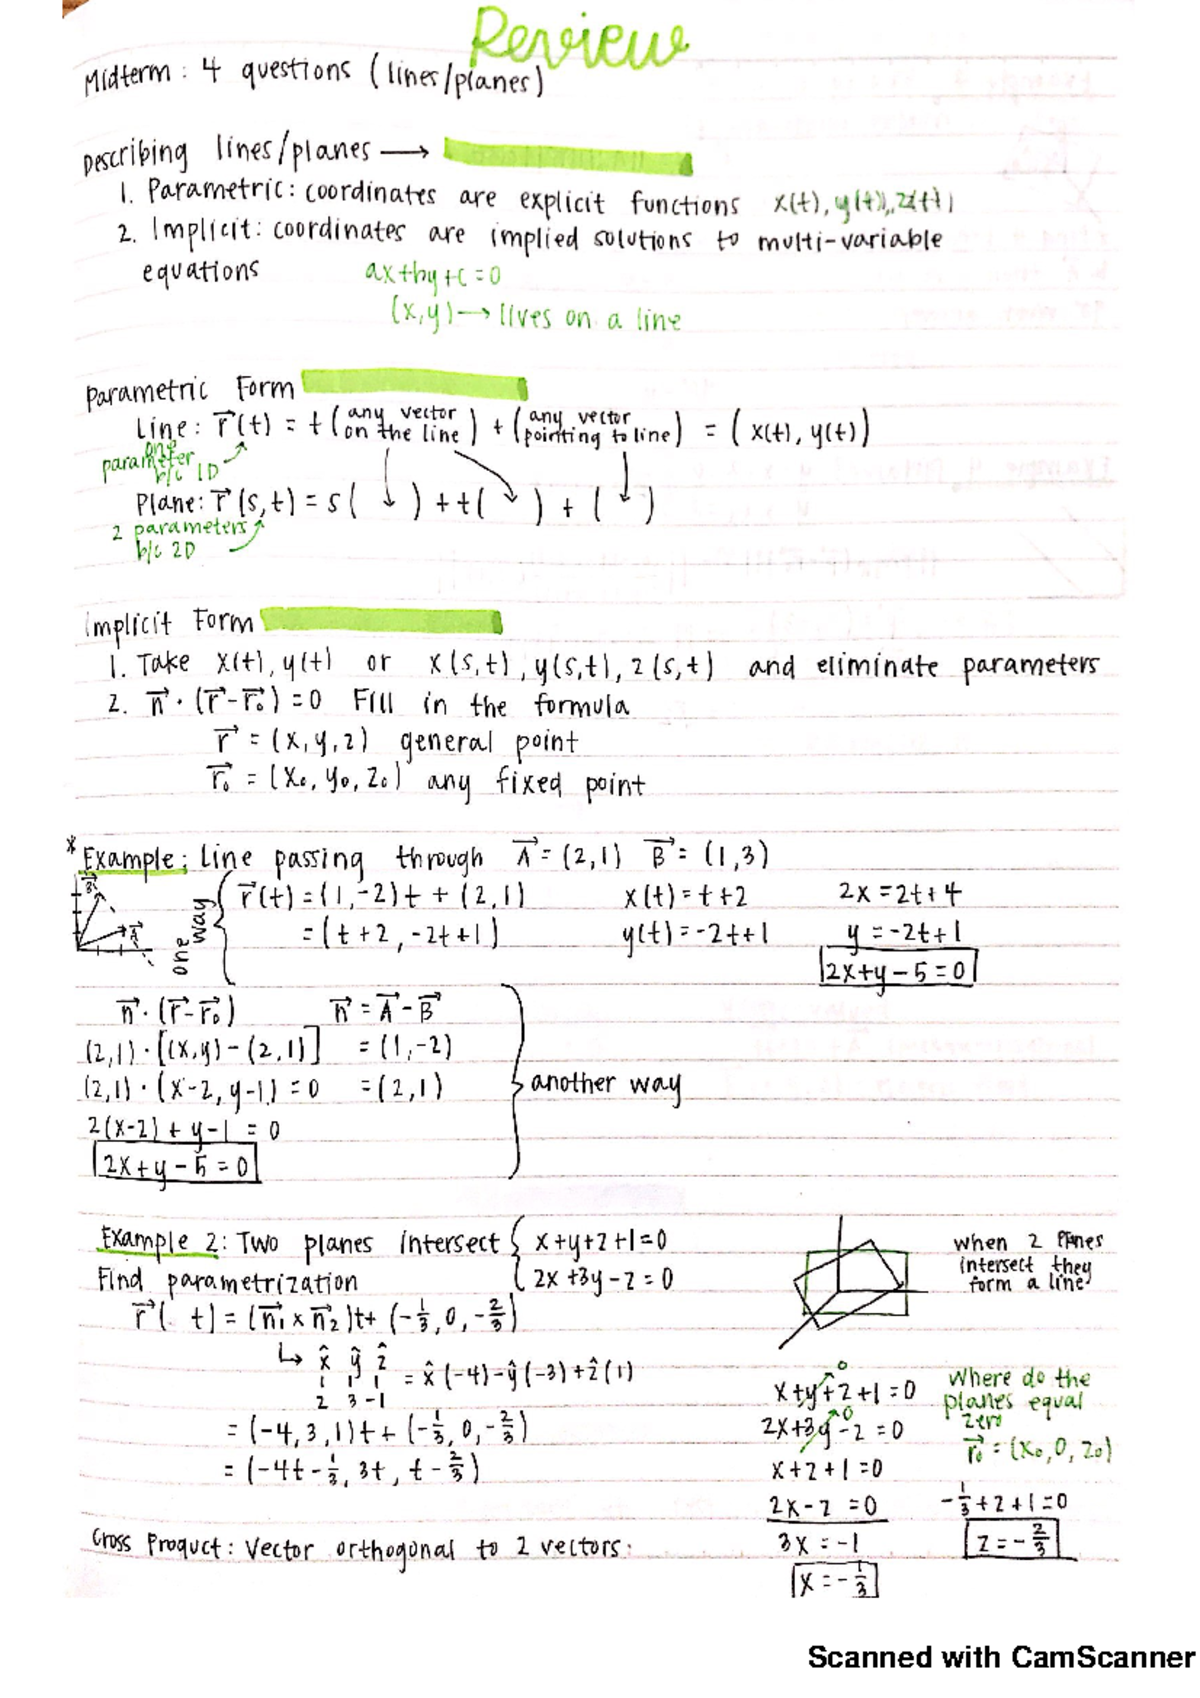 Review
Midterm: 4 questions (lines/planes)
Describing lines/planes →
1. Parametric: coordinates are explicit functions x(t), y(t), z(t)
2. Implicit: coordinates are implied solutions to multi-variable
equations ax+by+c=0
(x,y)→ lives on a line
Parametric Form
Line: r⃗(t) = t(any vector on the line) + (any vector pointing to line) = (x(t), y(t))
one parameter b/c 1D
Plane: r⃗(s,t) = s( ↓ ) + t( ↘ ) + ( ↓ )
2 parameters b/c 2D
Implicit Form
1. Take x(t), y(t) or x(s,t), y(s,t), z(s,t) and eliminate parameters
2. n⃗·(r⃗-r⃗₀)=0 Fill in the formula
r⃗ = (x,y,z) general point
r⃗₀ = (x₀, y₀, z₀) any fixed point
* Example: Line passing through A⃗=(2,1) B⃗=(1,3)
B⃗
A⃗
one way
r⃗(t)=(1,-2)t + (2,1) x(t)=t+2 2x=2t+4
=(t+2, -2t+1) y(t)=-2t+1 y=-2t+1
2x+y-5=0
n⃗·(r⃗-r⃗₀) n⃗=A⃗-B⃗
(2,1)·[(x,y)-(2,1)] =(1,-2)
(2,1)·(x-2, y-1)=0 =(2,1)
another way
2(x-2)+y-1=0
2x+y-5=0
Example 2: Two planes intersect { x+y+z+1=0
2x+3y-z=0
Find parametrization
r⃗( t)=(n⃗₁×n⃗₂)t+(-1/3, 0, -2/3)
↳ x̂ ŷ ẑ
1 1 1
2 3 -1
= x̂(-4)-ŷ(-3)+ẑ(1)
=(-4,3,1)t+(-1/3, 0, -2/3)
=(-4t-1/3, 3t, t-2/3)
Cross Product: Vector orthogonal to 2 vectors.
when 2 planes
intersect they
form a line
x+y+z+1=0
0
2x+3y-z=0
0
x+z+1=0
2x-z=0
3x=-1
x=-1/3
Where do the
planes equal
zero
r⃗₀=(x₀,0,z₀)
-1/3+z+1=0
z=-2/3
Scanned with CamScanner